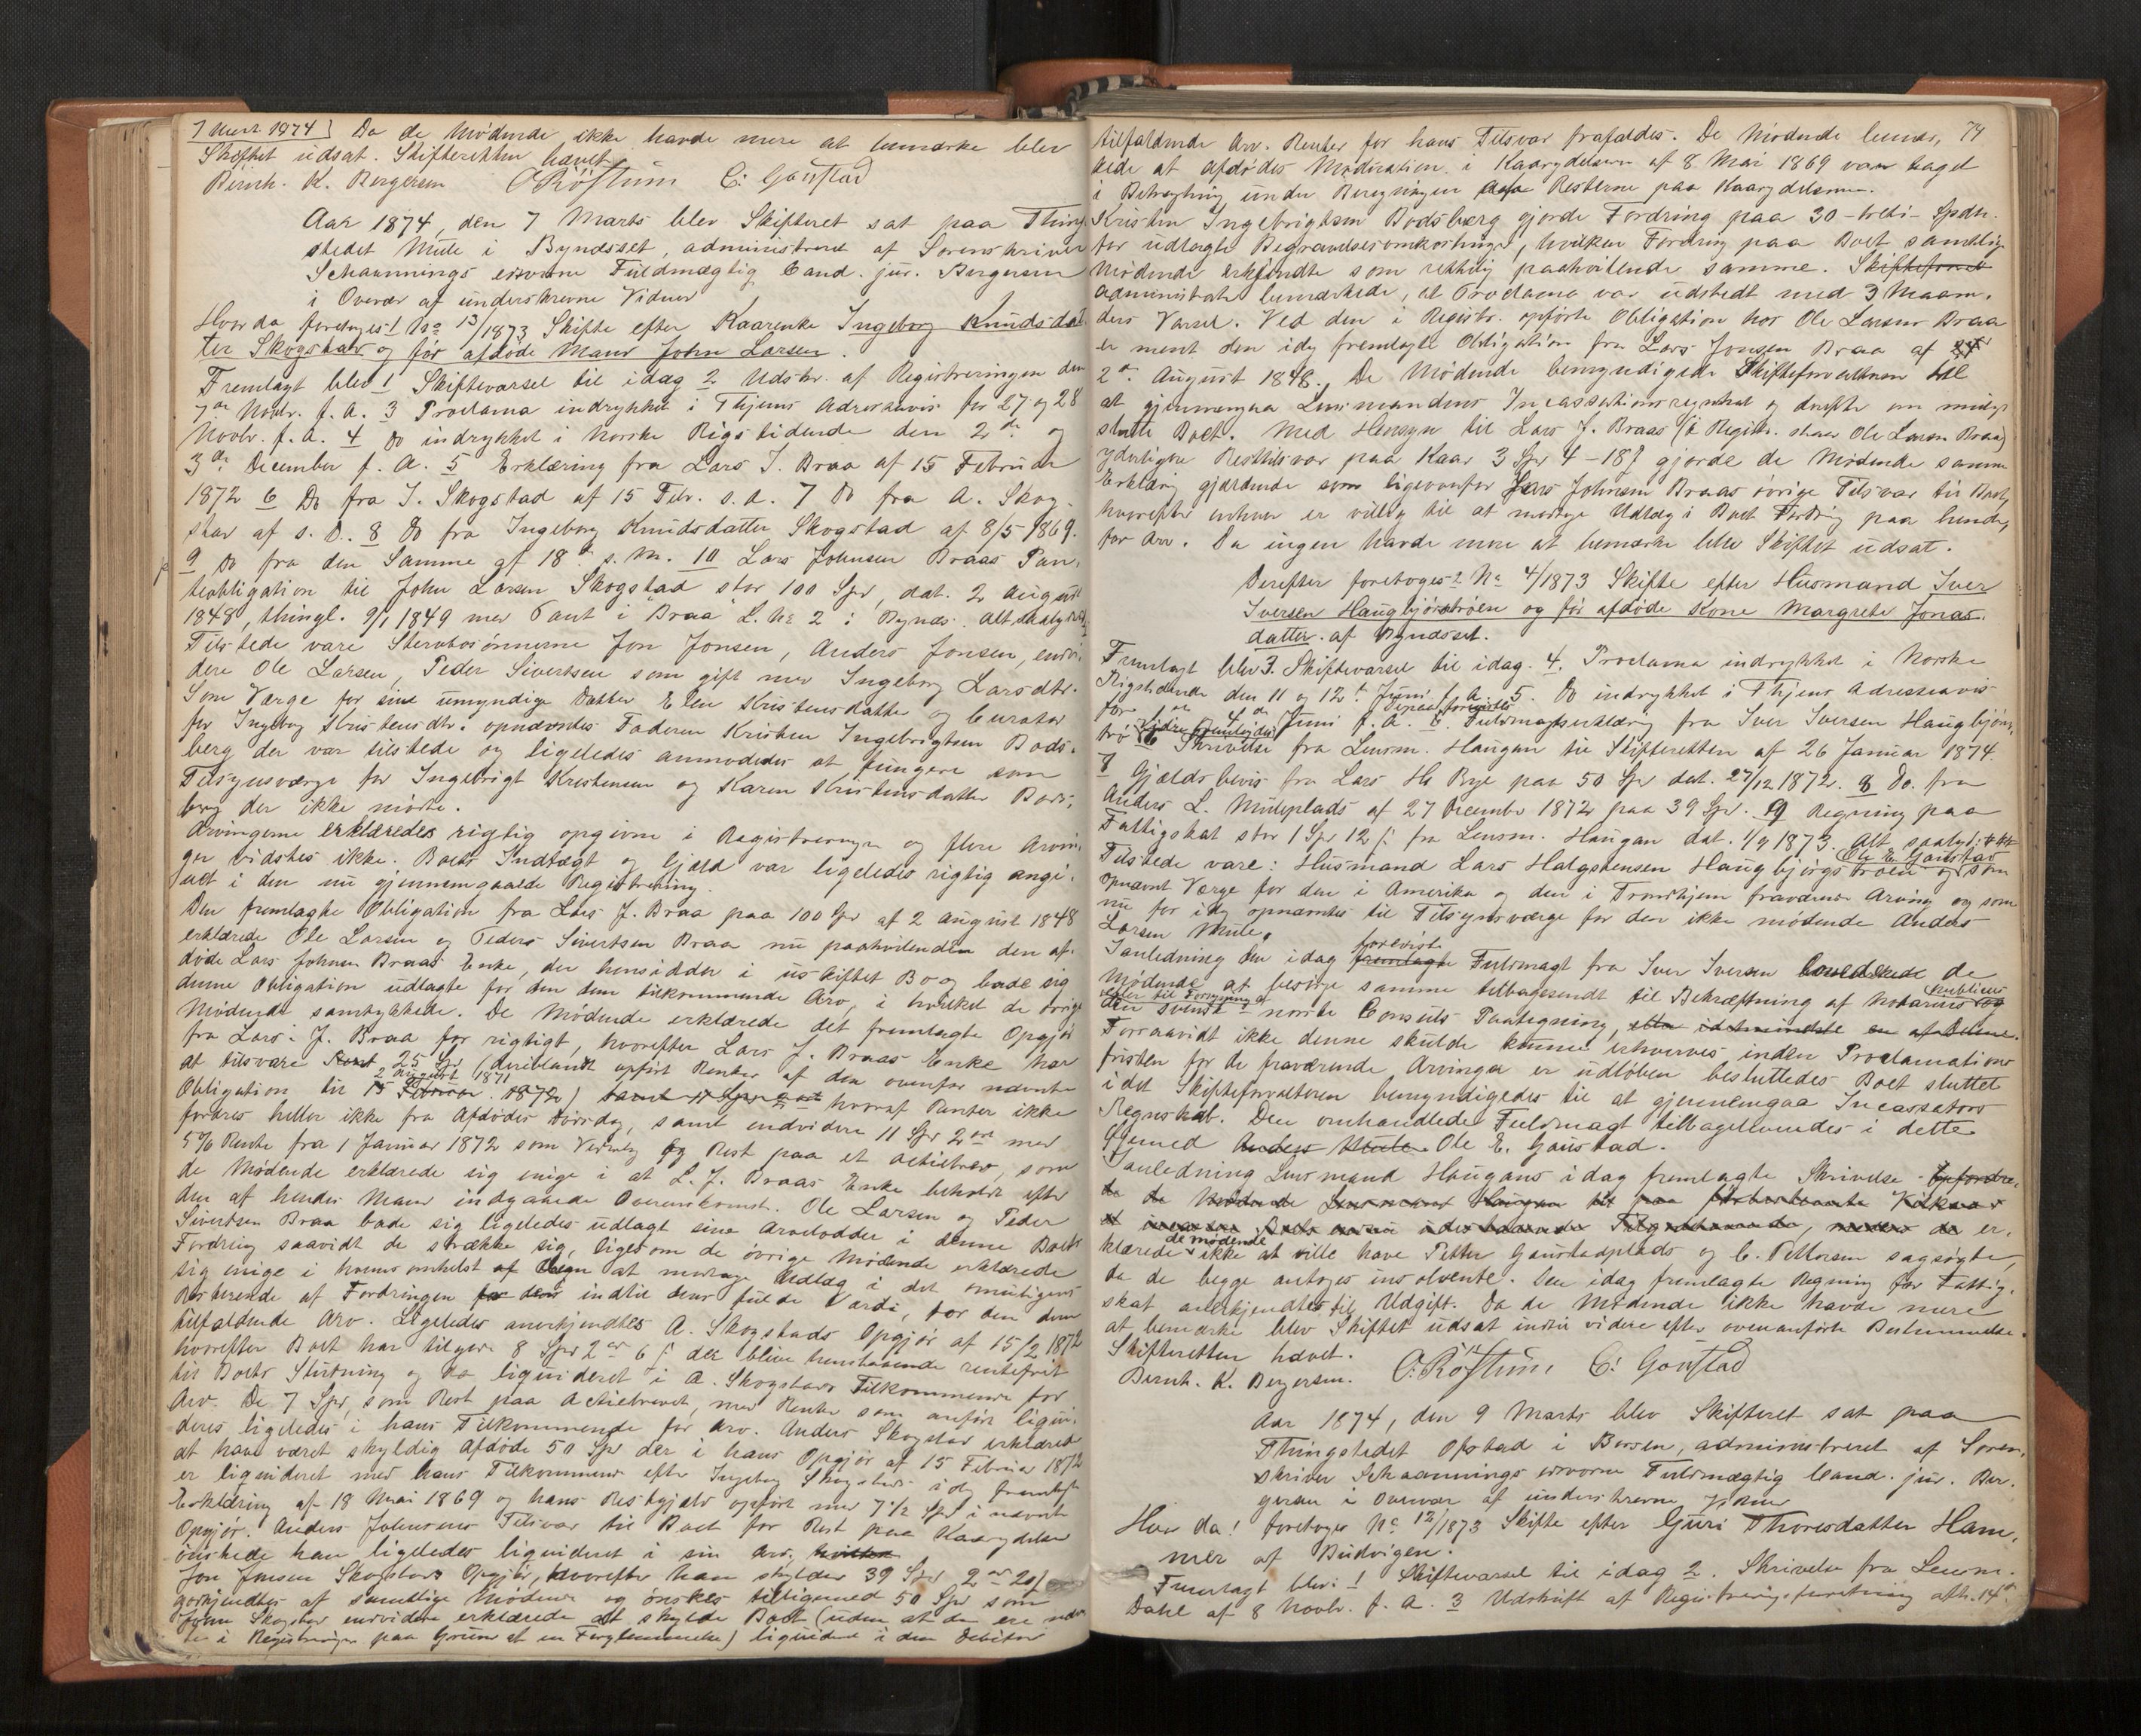 7 Marts 1874] Da de Mødende ikke havde mere at bemærke blev
Skiftet udsat. Skifteretten hævet
Bernh. K. Bergersen O Röstum C: Gaustad
Aar 1874, den 7 Marts blev Skifteret sat paa Thing-
stedet Mule i Bynæsset, administreret af Sorenskriver
Schaannings edsvorne Fuldmægtig Cand. jur. Bergersen
i Overvær af underskrevne Vidner
Hvor da foretoges! No 13/1873 Skifte efter Kaarenke Ingeborg Knudsdat-
ter Skogstad og før afdøde Mand John Larsen.
Fremlagt blev 1 Skiftevarsel til idag 2 Udskr. af Registreringen den
7de Novbr. f. A. 3 Proclama indrykket i Thjems Adresseavis for 27 og 28
Novbr. f. A. 4 Do indrykket i Norske Rigstidende den 2den og
3die December f. A. 5 Erklæring fra Lars J. Braa af 15 Februar
1872 6 Do fra J. Skogstad af 15 Febr. s. A. 7 Do fra A. Skog-
stad af s. D. 8 Do fra Ingeborg Knudsdatter Skogstad af 8/5 1869.
9 Do fra den Samme af 18d s. M. 10 Lars Johnsen Braas Pan-
teobligation til John Larsen Skogstad stor 100 Spd, dat. 2 August
1848, thingl. 9/1 1849 med Pant i Braa L. No 2 i Bynæs. alt saalyd.
Tilstede vare Stervbosønnerne Jon Jonsen, Anders Jonsen, endvi-
dere Ole Larsen, Peder Sivertsen som gift med Ingeborg Larsdtr.
Som Værge for sine umyndige Datter Elen Kristensdatter og Curator
for Ingeborg Kristensdtr. opnævntes Faderen Kristen Ingebrigtsen Bods-
berg der var tilstede og ligeledes anmodedes at fungere som
Tilsynsværge for Ingebrigt Kristensen og Karen Kristensdatter Bods-
berg der ikke mødte.
Arvingerne erklæredes rigtig opgivne i Registreringen og flere Arvin-
ger vidstes ikke. Boets Indtægt og Gjæld var ligeledes rigtig angi-
vet i den nu gjennemgaaede Registrering.
Den fremlagte Obligation fra Lars J. Braa paa 100 Spd af 2 August 1848
erklærede Ole Larsen og Peders Sivertsen Braa nu paahvilende den af-
døde Lars Johnsen Braas Enke, der hensidder i uskiftet Bo og bade sig
denne Obligation udlagte for den dem tilkommende Arv, i hvilket de øvrige
Mødende samtykkede. De Mødende erklærede det fremlagte Opgjør
fra Lars J. Braa for rigtigt, hvorefter Lars J. Braas Enke har
at tilsvare 25 Spd (deriblandt opført Renter af den ovenfor nævnte
2 August 1871
Obligation til 15 Februar 1872) hvoraf Renter ikke
fordres heller ikke fra Afdødes Dødsdag, samt endvidere 11 Spd 2 ort med
5% Rente fra 1 Januar 1872 som Vederlag og Rest paa et Actiebrev, som
de Mødende erklærede sig enige i at L. J. Braas Enke beholdt efter
den af hendes Mand indgaaede Overenskomst. Ole Larsen og Peder
Sivertsen Braa bade sig ligeledes udlagt sine Arvelodder i denne Boets
Fordring saavidt de strække sig, ligesom de øvrige Mødende erklærede
sig enige i hvemsomhelst af dem at modtage Udlæg i det muligens
Resterende af Fordringen for den indtil dens fulde Værdi, for den dem
tilfaldende Arv. Ligeledes anerkjendtes A. Skogstads Opgjør af 15/2 1872
hvorefter Boet har tilgode 8 Spd 2 ort 6 s. der blive henstaaende rentefrit
til Boets Slutning og da liquideret i A. Skogstads Tilkommende for
Arv. De 7 Spd, som Rest paa Actiebrevet, med Renter som anført liqui-
deres ligeledes i hans Tilkommende for Arv. Anders Skogstad erklærede
at have været skyldig Afdøde 50 Spd der i hans Opgjør af 15 Februar 1872
er liquideret med hans Tilkommende efter Ingeborg Skogstads idag fremlagte
Erklæring af 18 Mai 1869 og hans Restgjæld opført med 7 1/2 Spd i nævnte
Opgjør. Anders Johnsens Tilsvar til Boet for Rest paa Kaarydelser
ønskede han ligeledes liquideret i sin Arv.
Jon Jonsen Skogstads Opgjør, hvorefter han skylder 39 Spd 2 ort 20 s
godkjendtes af samtlige Mødende og ønskes tilligemed 50 Spd som
John Skogstad endvidere erklærede at skylde Boet (uden at de ere
i Registreringen paa Grund af en Forglemmelse) liquideret i den Debitor
tilfaldende Arv. Renter for hans Tilsvar frafaldes. De Mødende bemær- 74
kede at Afdødes Moderation i Kaarydelsen af 8 Mai 1869 var taget
i Betragtning under Beregningen af Resterne paa Kaarydelserne.
Kristen Ingebrigtsen Bodsberg gjorde Fordring paa 30 - tredi - Spdlr.
for udlagte Begravelsesomkostninger, hvilken Fordring paa Boet samtlige
Mødende erkjendte som rettelig paahvilende samme. Skifteforval
administrator bemærkede, at Proclama var udstedt med 3 Maane-
ders Varsel. Ved den i Registr. opførte Obligation hos Ole Larsen Braa
er ment den idag fremlagte Obligation fra Lars Jonsen Braa af
2den August 1848. De Mødende bemyndigede Skifteforvalteren til
at gjennemgaa Lensmandens Incassationsregnskab og derefter om muligt
slutte Boet. Med Hensyn til Lars J. Braas (i Registr. staar Ole Larsen Braa)
yderligere Resttilsvar paa Kaar 3 Spd 4 - 18 s gjorde de Mødende samme
Erklæring gjældende som ligeovenfor Lars Johnsen Braas øvrige Tilsvar til Boet,
hvorefter enhver er villig til at modtage Udlæg i Boets Fordring paa hende,
for Arv. Da ingen havde mere at bemærke blev Skiftet udsat.
Derefter foretoges 2 No 4/1873 Skifte efter Husmand Iver
Iversen Haugbjørstrøen og før afdøde Kone Margrete Jonas-
datter af Bynæsset.
Fremlagt blev 3. Skiftevarsel til idag. 4. Proclama indrykket i Norske
Rigstidende den 11 og 12te Juni f. A. 5. Do indrykket i Thjems Adresseavis
for Juni f. A. Fuldmagtserklæring fra Iver Iversen Haugbjørs-
trø 6 Skrivelse fra Lensm. Haugan til Skifteretten af 26 Januar 1874.
7 Gjældsbevis fra Lars Hs Bye paa 50 Spd dat. 27/12 1872. 8 Do. fra
Anders L. Muleplads af 27 December 1872 paa 39 Spd. 9 Regning paa
Fattigskat stor 1 Spd 12 s. fra Lensm. Haugan dat. 1/9 1873. Alt saalyd:
Tilstede vare: Husmand Lars Halgstensen Haugbjørgstrøen og Ole E. Gaustad som
opnævnt Værge for den i Amerika og den i Trondhjem fraværende Arving og som
nu for idag opnævntes til Tilsynsværge for den ikke mødende Anders
Larsen Mule.
I anledning den idag foreviste Fuldmagt fra Iver Iversen de
Mødende at besørge samme tilbagesendt til Bekræftning af Notarius Publicus
eller til Forsyning af
den svensk-norske Consuls Paategning,
Forsaavidt ikke denne skulde kunne erhverves inden Proclamations
fristen for de fraværende Arvinger er udløben besluttedes Boet sluttet
idet Skifteforvalteren bemyndigedes til at gjennemgaa Incassators
Regnskab. Den omhandlede Fuldmagt tilbageleveredes i dette
Øiemed Anders Mule Ole E. Gaustad.
I anledning Lensmand Haugans idag fremlagte Skrivelse
er-
klærede de mødende ikke at ville have Petter Gaustadplads og C. Pettersen sagsøgte,
da de begge antages insolvente. Den idag fremlagte Regning for Fattig-
skat anerkjendtes til Udgift. Da de Mødende ikke havde mere
at bemærke blev Skiftet udsat indtil videre efter ovenanførte Bestemmelse.
Skifteretten hævet.
Bernh. K. Bergersen. O: Röstum, C: Gaustad
Aar 1874, den 9 Marts blev Skifteret sat paa
Thingstedet Opstad i Børsen, administreret af Soren-
skriver Schaannings edsvorne Fuldmægtig Cand. jur. Ber-
gersen i Overvær af underskrevne Vidner
Hvor da! foretoges No 12/1873 Skifte efter Guri Thoresdatter Ham-
mer af Budvigen.
Fremlagt blev: 1 Skiftevarsel til idag 2. Skrivelse fra Lensm.
Dahl af 8 Novbr. f. A. 3 Udskrift af Registreringsforretning afh. 14de